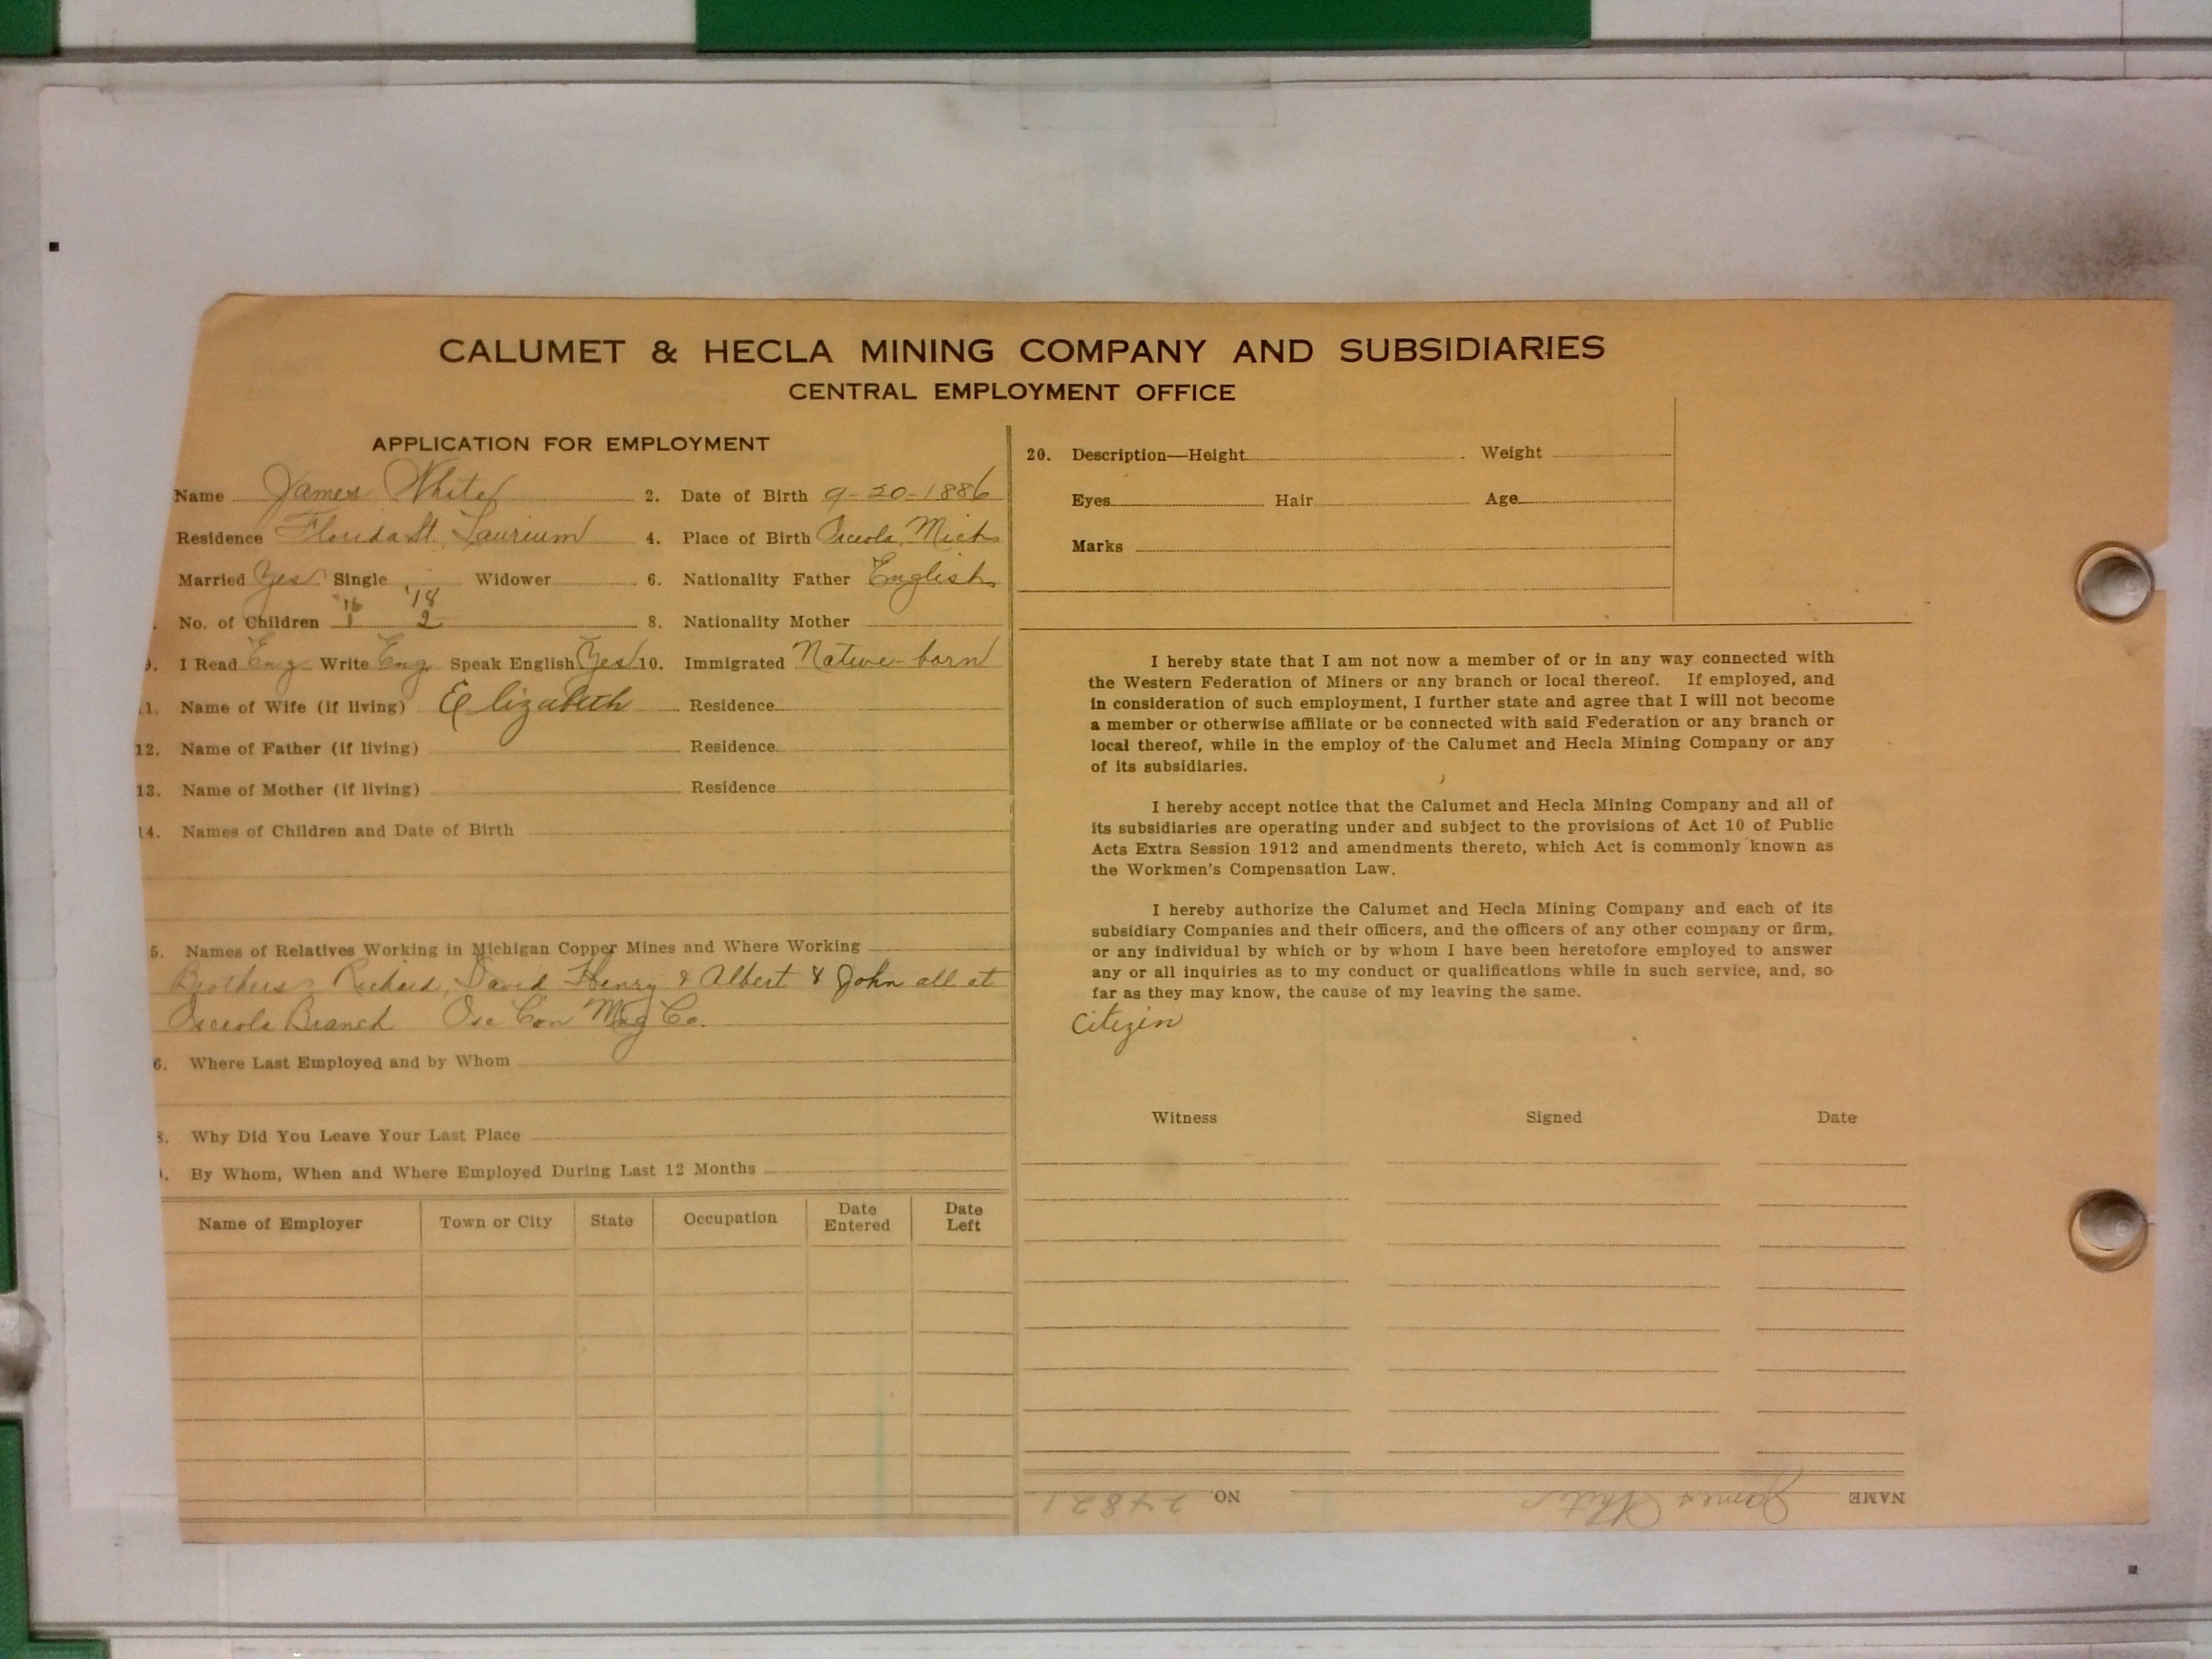 CALUMET & HECLA MINING COMPANY AND SUBSIDIARIES
CENTRAL EMPLOYMENT OFFICE
APPLICATION FOR EMPLOYMENT
Name James White 2. Date of Birth 9-20-1886
Residence Florida St. Laurium 4. Place of Birth Osceola, Mich
Married Yes Single Widower 6. Nationality Father English
'16 '18
No. of Children 1 2 8. Nationality Mother
9. I Read Eng Write Eng. Speak English Yes 10. Immigrated Native-born
11. Name of Wife (if living) Elizabeth Residence
12. Name of Father (if living) Residence
13. Name of Mother (if living) Residence
14. Names of Children and Date of Birth
5. Names of Relatives Working in Michigan Copper Mines and Where Working
Brothers - Richard, David Henry & Albert & John all at
Osceola Branch Osc Con Mng Co.
6. Where Last Employed and by Whom
8. Why Did You Leave Your Last Place
. By Whom, When and Where Employed During Last 12 Months
Name of Employer Town or City State Occupation Date Entered Date Left
20. Description—Height Weight
Eyes Hair Age
Marks
I hereby state that I am not now a member of or in any way connected with
the Western Federation of Miners or any branch or local thereof. If employed, and
in consideration of such employment, I further state and agree that I will not become
a member or otherwise affiliate or be connected with said Federation or any branch or
local thereof, while in the employ of the Calumet and Hecla Mining Company or any
of its subsidiaries.
I hereby accept notice that the Calumet and Hecla Mining Company and all of
its subsidiaries are operating under and subject to the provisions of Act 10 of Public
Acts Extra Session 1912 and amendments thereto, which Act is commonly known as
the Workmen's Compensation Law.
I hereby authorize the Calumet and Hecla Mining Company and each of its
subsidiary Companies and their officers, and the officers of any other company or firm,
or any individual by which or by whom I have been heretofore employed to answer
any or all inquiries as to my conduct or qualifications while in such service, and, so
far as they may know, the cause of my leaving the same.
Citizen
Witness Signed Date
NAME James White NO. 24821